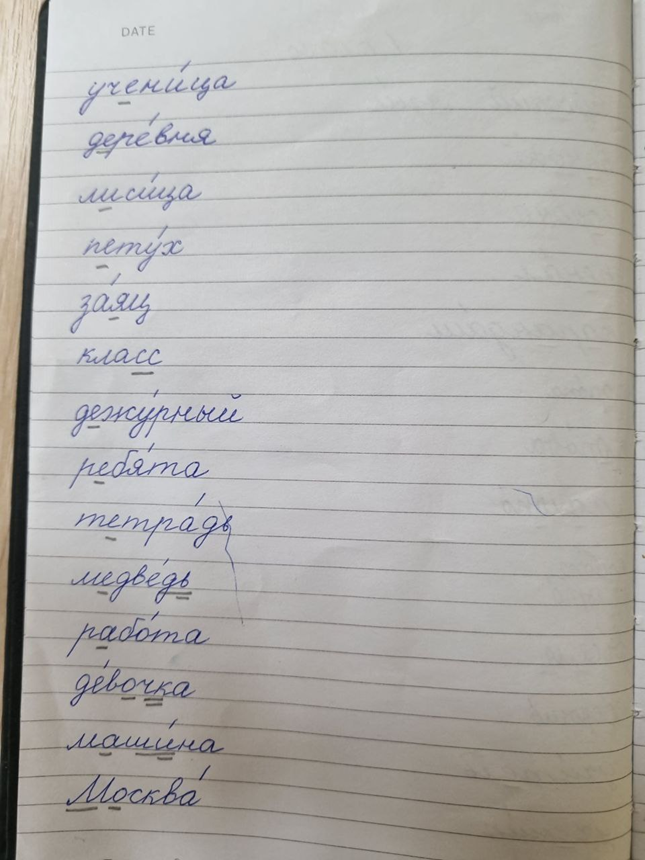 DATE
учени́ца
дере́вня
лиси́ца
пету́х
за́яц
класс
дежу́рный
ребя́та
тетра́дь
медве́дь
рабо́та
де́вочка
маши́на
Москва́